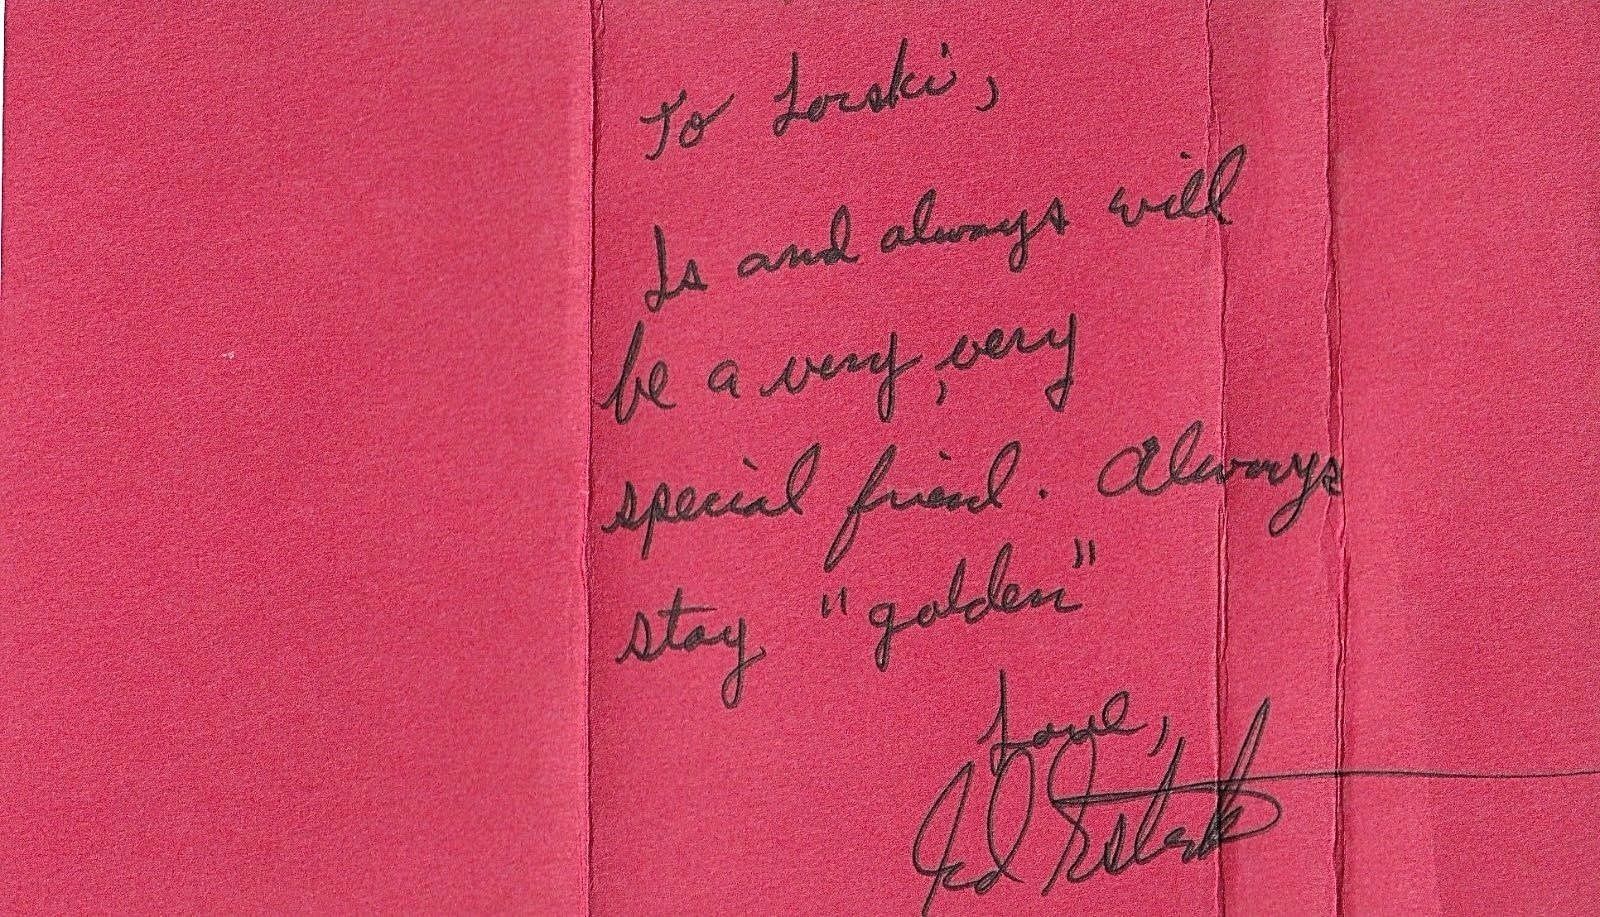 To Lorski,
Is and always will
be a very, very
special friend. Always
stay "golden"
Love,